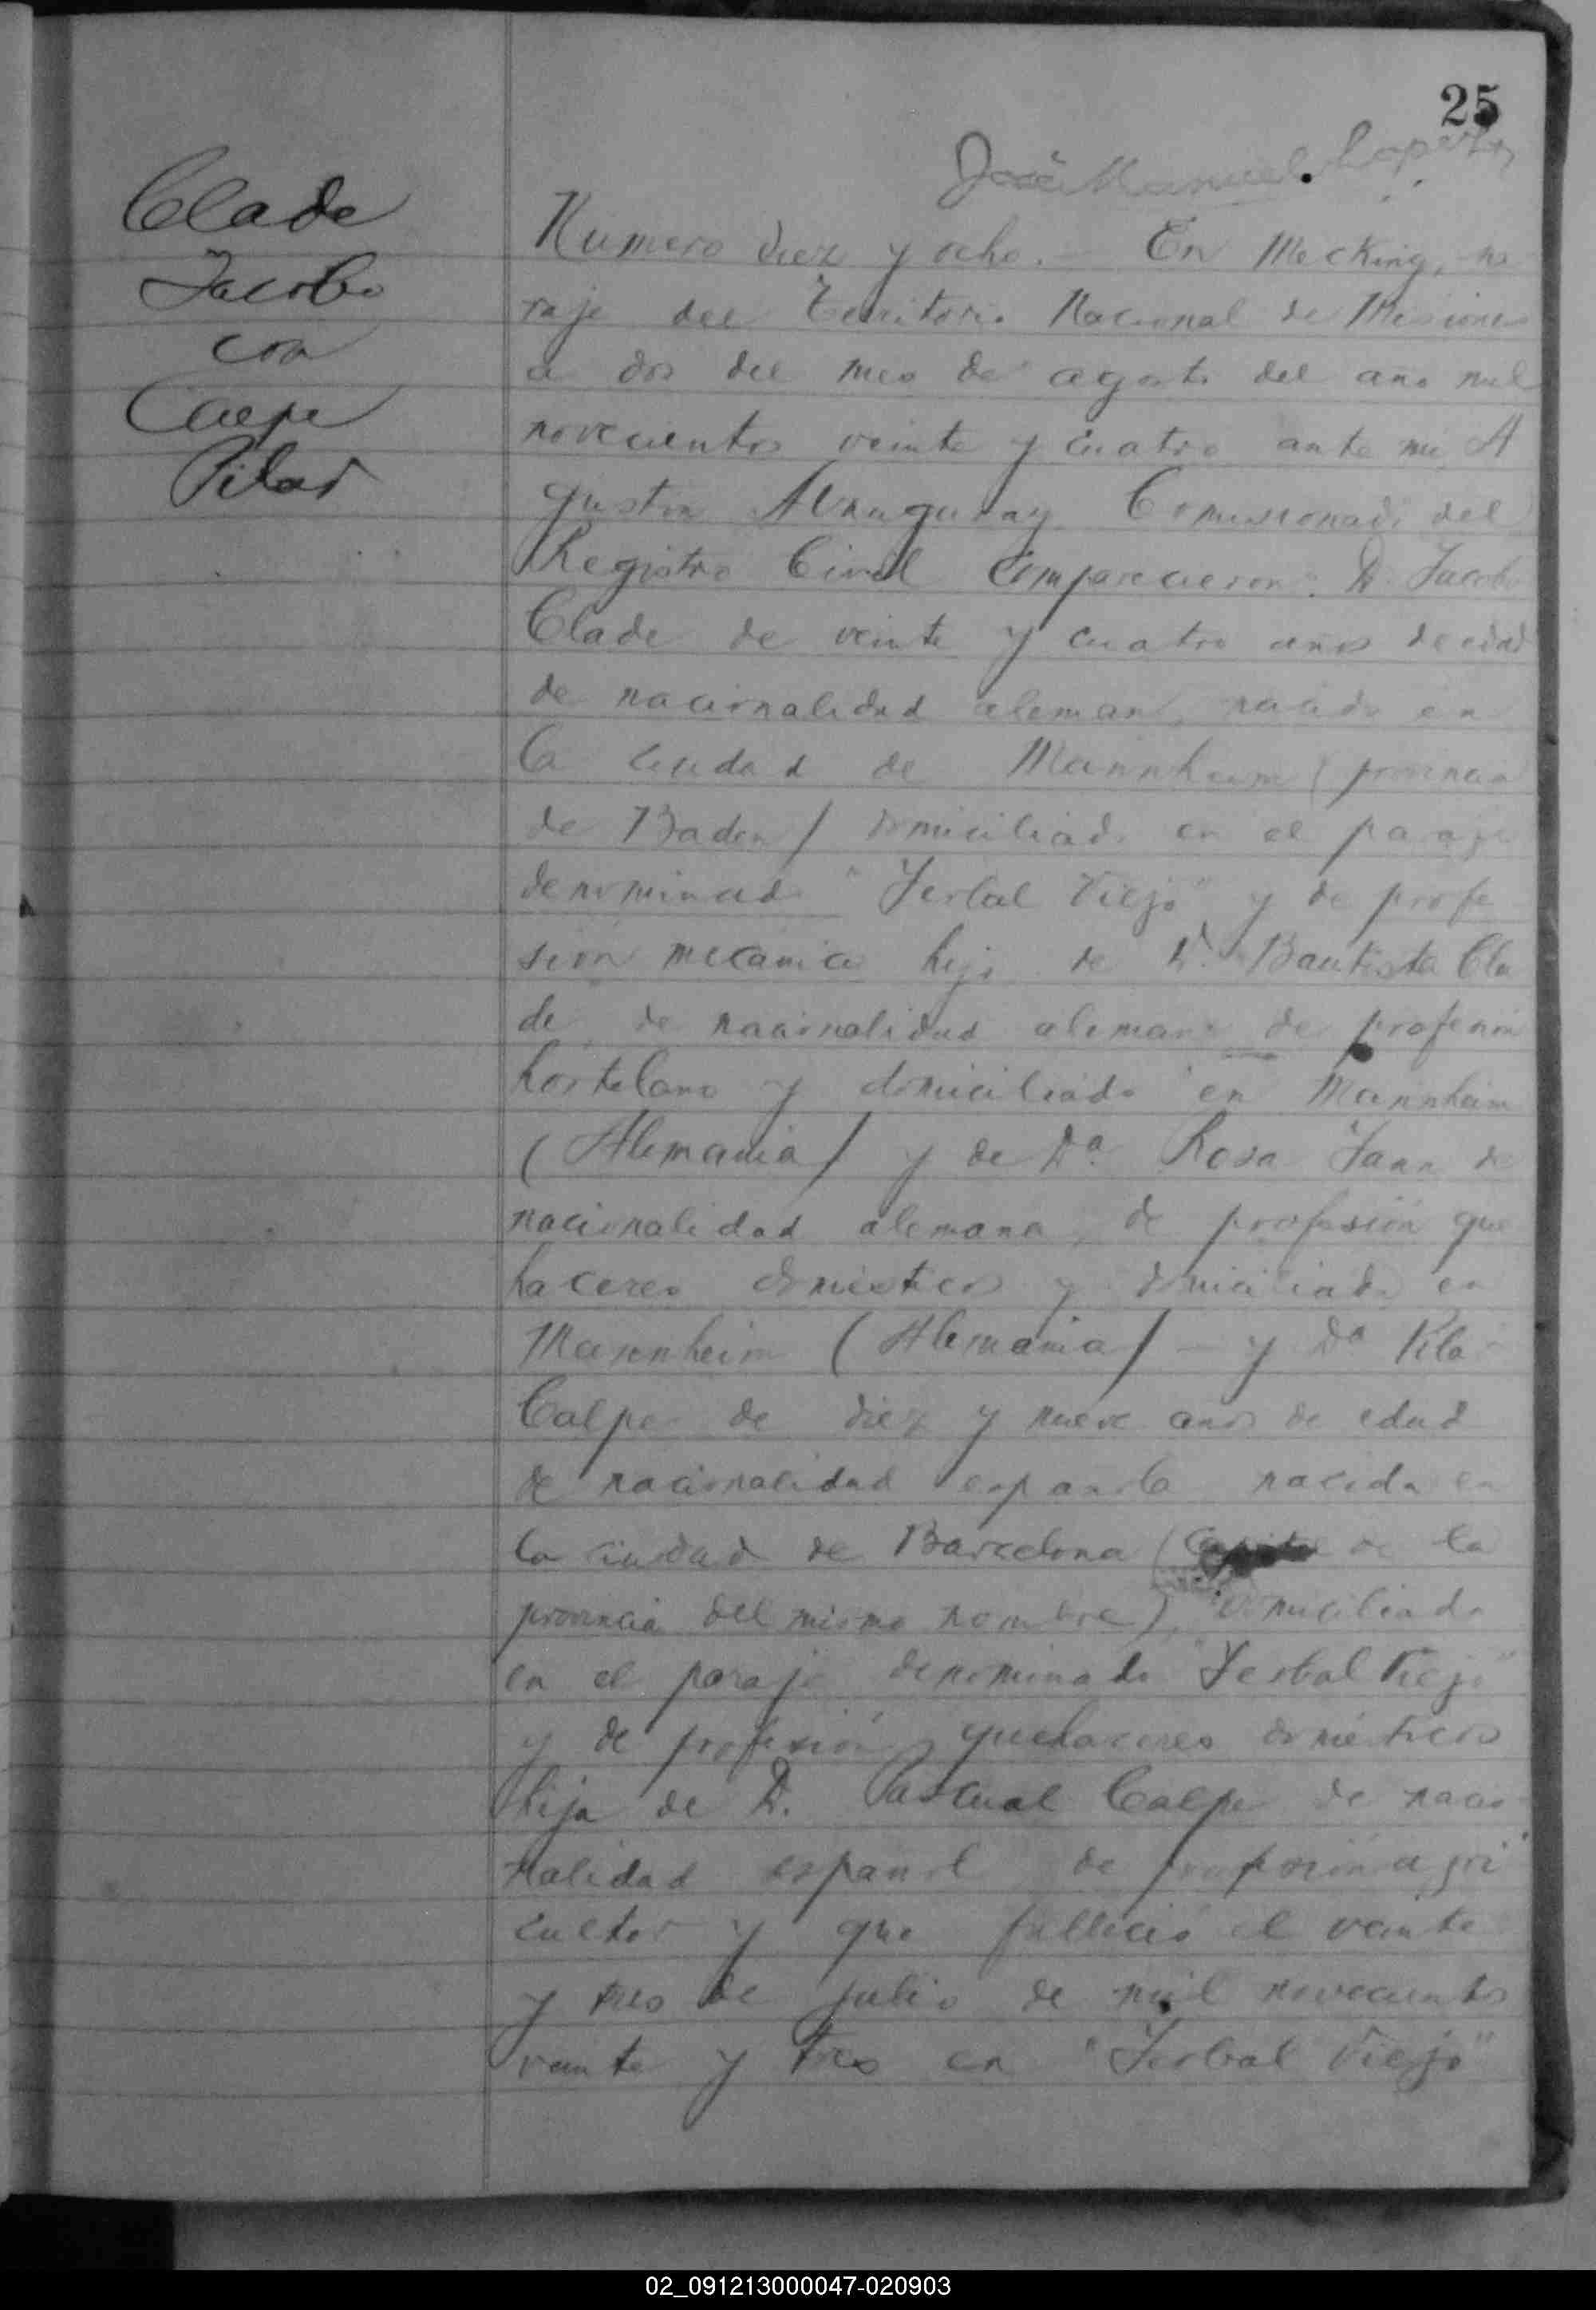 25
José Manuel
Clade
Jacobo
con
Calpe
Pilar
Numero diez y ocho. — En Mecking, pa
raje del Territorio Nacional de Misiones
a dos del mes de agosto del año mil
novecientos veinte y cuatro ante mi A
gustin Comisionado del
Registro Civil comparecieron: D. Jacobo
Clade de veinte y cuatro años de edad
de nacionalidad aleman, nacido en
la ciudad de Mannheim (provincia
de Baden) domiciliado en el paraje
denominado "Yerbal Viejo" y de profe
sión mecánico hijo de D. Bautista Cla
de, de nacionalidad aleman, de profesión
hortelano y domiciliado en Mannheim
(Alemania) y de Da. Rosa Jann de
nacionalidad alemana, de profesión que
haceres domésticos y domiciliada en
Mannheim (Alemania) — y Da Pilar
Calpe de diez y nueve años de edad
de nacionalidad española nacida en
la ciudad de Barcelona (Capital de la
provincia del mismo nombre), domiciliada
en el paraje denominado "Yerbal Viejo"
y de profesión quehaceres domésticos
hija de D. Pascual Calpe de nacio
nalidad español de profesión agri
cultor y que falleció el veinte
y tres de julio de mil novecientos
veinte y tres en "Yerbal Viejo"
02_091213000047-020903